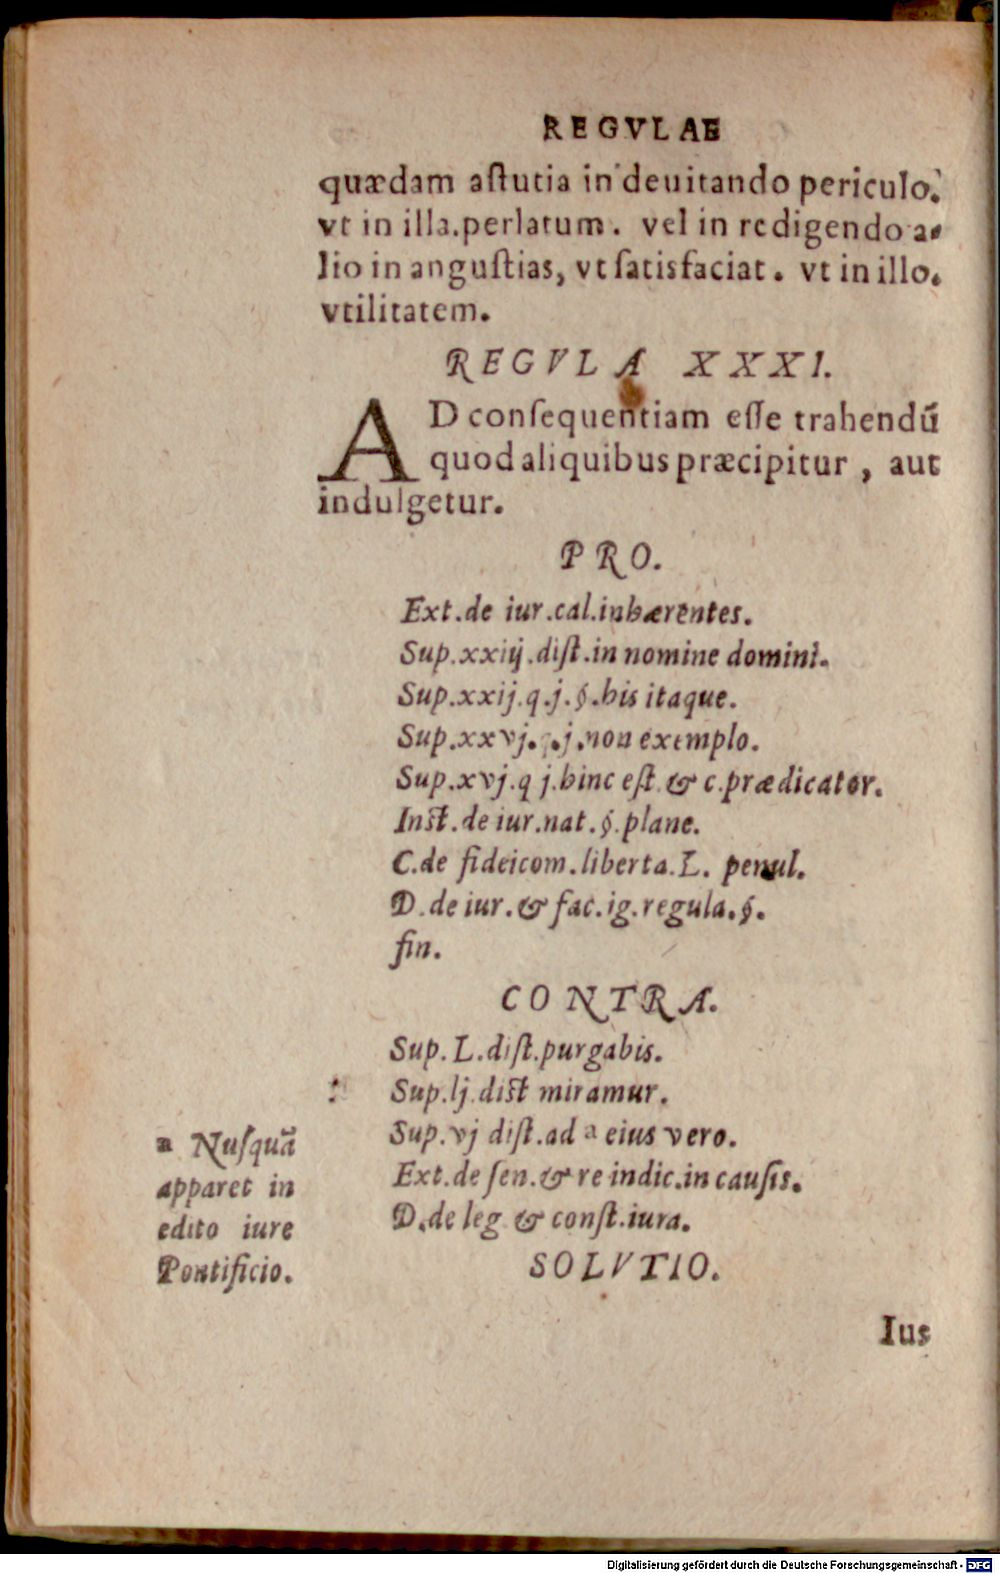 REGVLAE
quædam aſtutia in deuitando periculo.
vt in illa.perlatum. vel in redigendo a-
lio in anguſtias, vt ſatisfaciat. vt in illo.
vtilitatem.
REGVLA XXXI.
AD conſequentiam eſſe trahendū
quod aliquibus præcipitur, aut
indulgetur.
PRO.
Ext.de iur.cal.inhærentes.
Sup.xxiij.diſt.in nomine domini.
Sup.xxij.q.j.§.his itaque.
Sup.xxvj.q.j.non exemplo.
Sup.xvj.q j.hinc eſt.& c.prædicator.
Inſt.de iur.nat.§.plane.
C.de fideicom.liberta.L. penul.
D.de iur.& fac.ig.regula.§.
fin.
CONTRA.
Sup.L.diſt.purgabis.
Sup.lj.diſt miramur.
Sup.vj diſt.ad a eius vero.
a Nuſquā
apparet in
edito iure
Pontificio.
Ext.de ſen.& re iudic.in cauſis.
D.de leg & conſt.iura.
SOLVTIO.
Ius
Digitalisierung gefördert durch die Deutsche Forschungsgemeinschaft - DFG